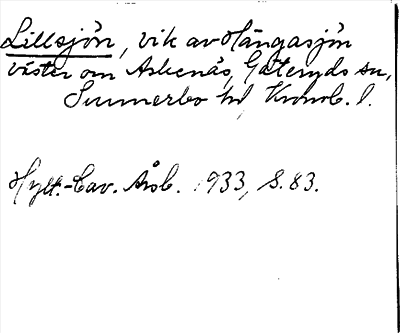 Lillsjön, vik av Hångasjön
väster om Askenäs, Göteryds sn,
Sunnerbo hd, Kronob. l.
Hylt.-Cav. Årsb. 1933, S. 83.